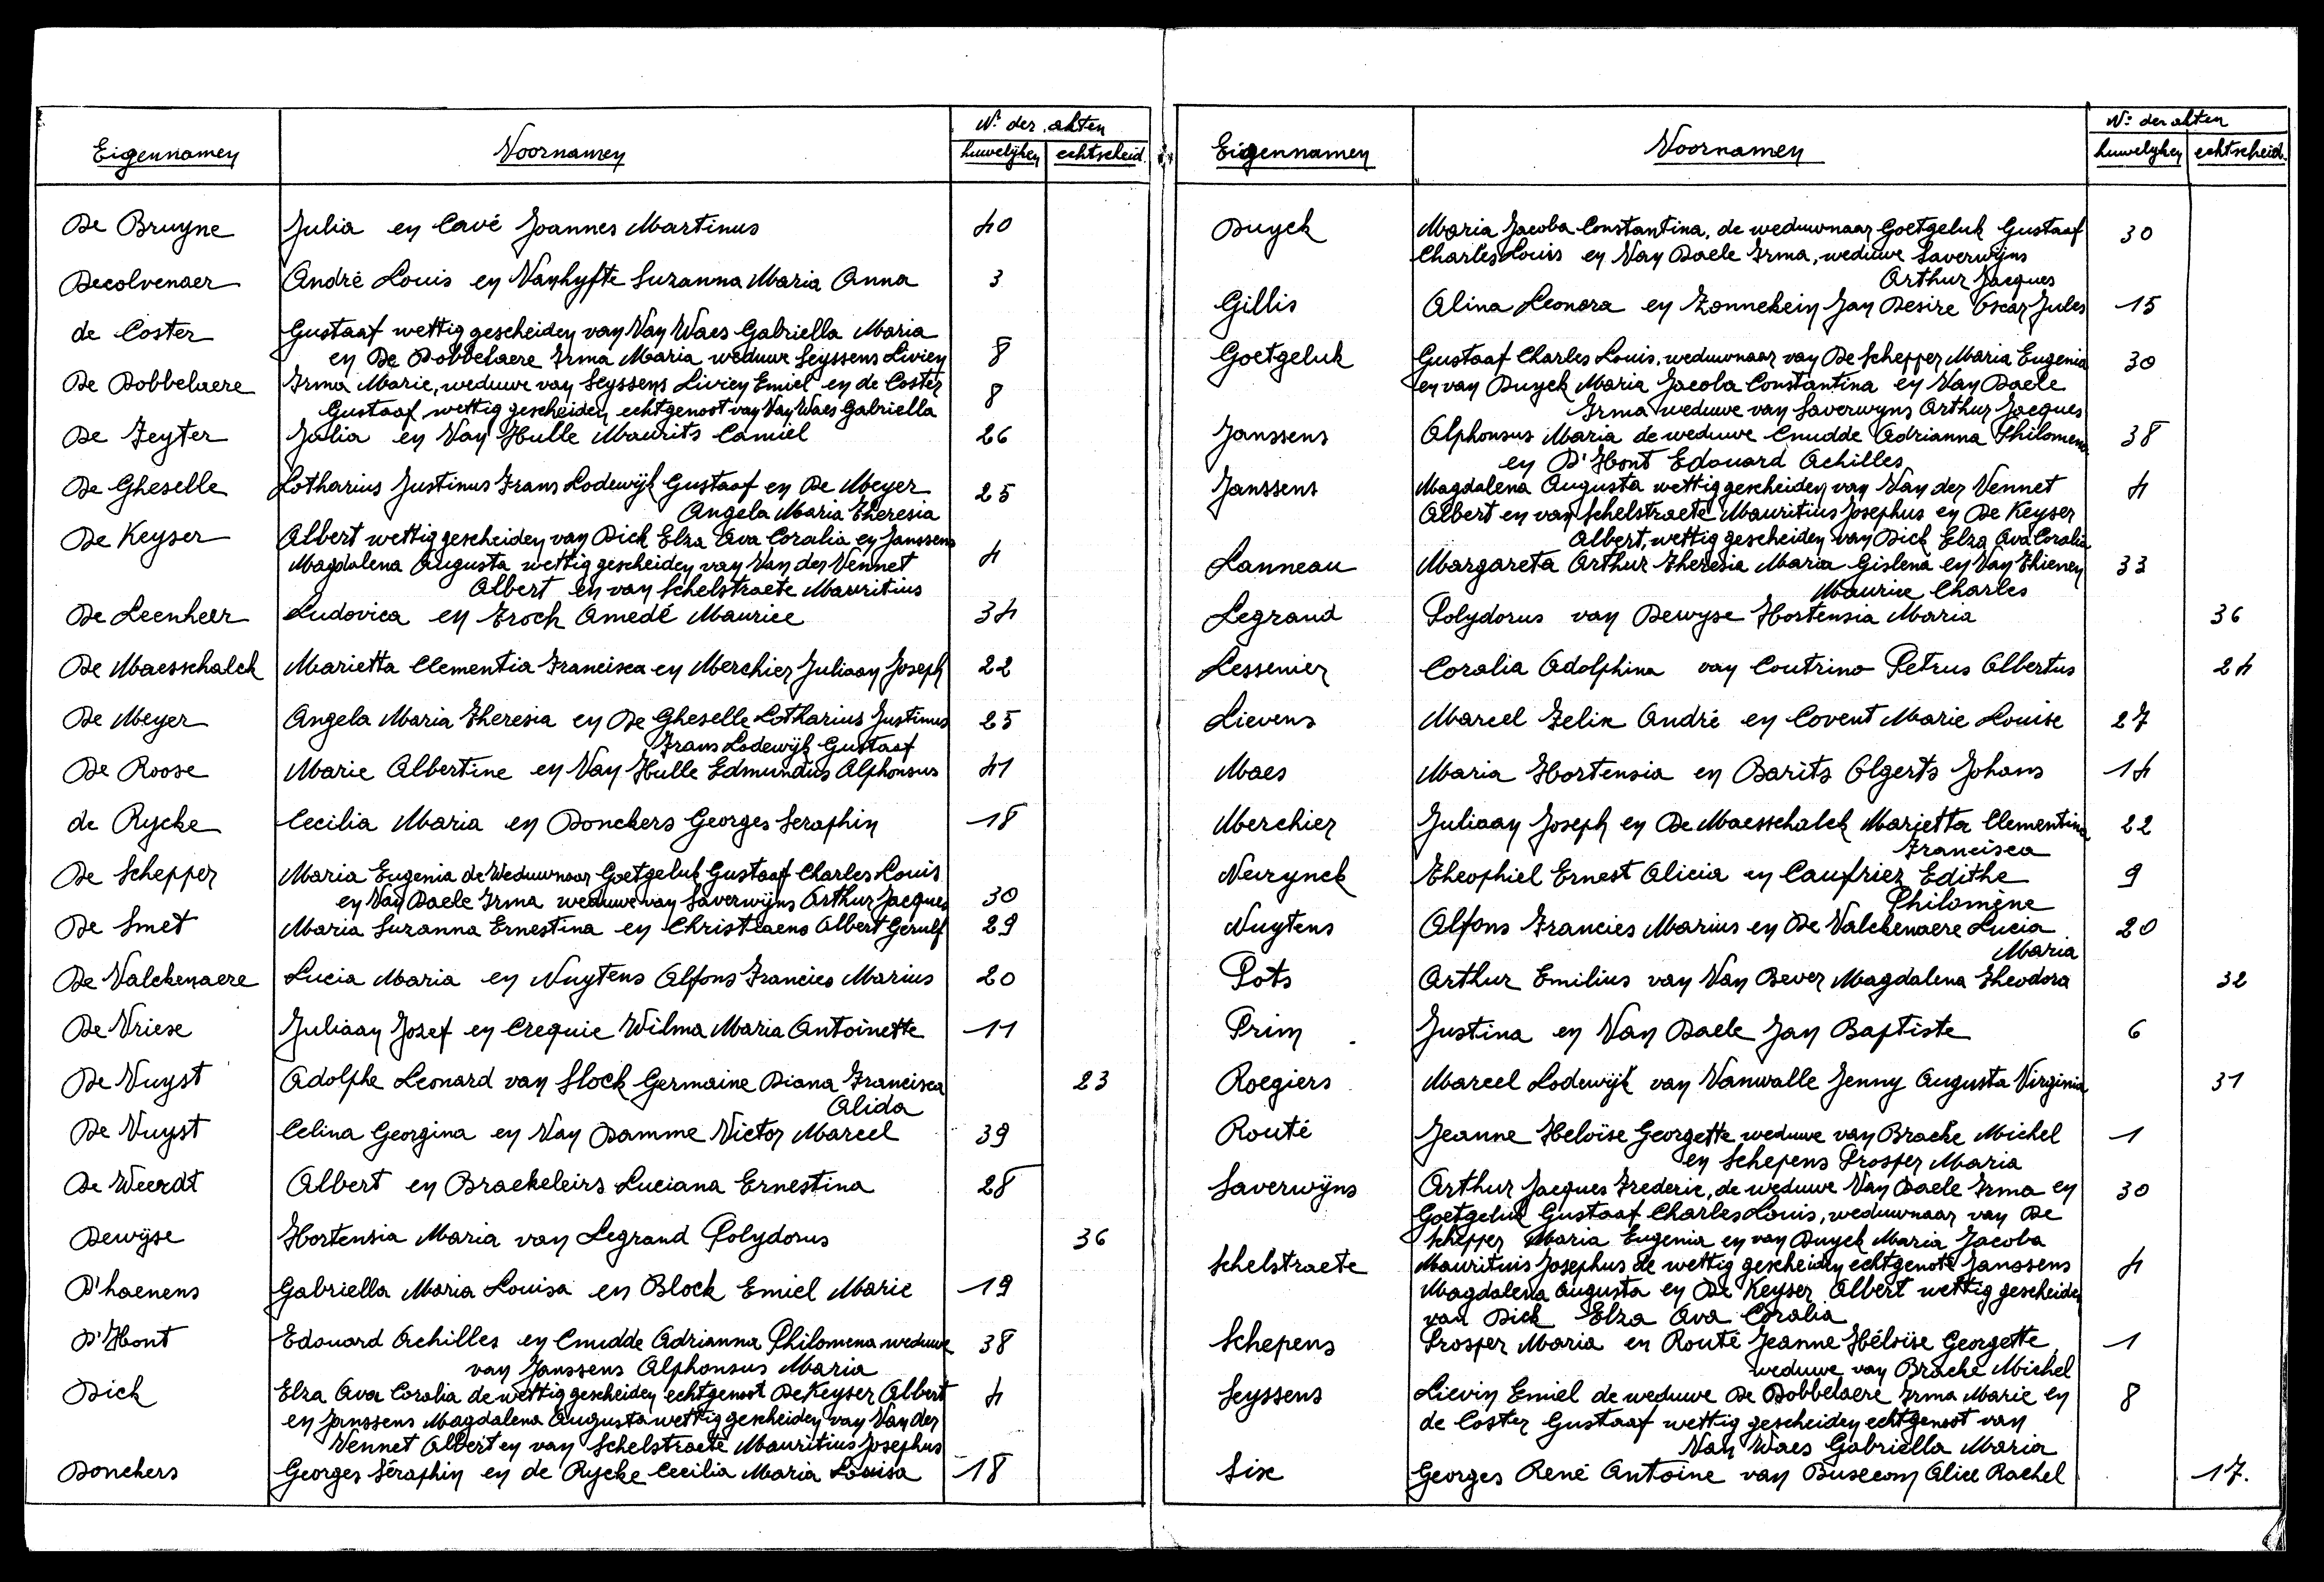 Eigennamen Voornamen Nr der akten
huwelijken echtscheid.
De Bruyne Julia en Cavé Joannes Martinus 40
Decolvenaer André Louis en Vanhyfte Suzanna Maria Anna 3
de Coster Gustaaf wettig gescheiden van Van Waes Gabriella Maria
en De Dobbelaere Irma Maria weduwe Seyssens Livien 8
De Dobbelaere Irma Marie, weduwe van Seyssens Livien Emiel en de Coster 8
Gustaaf, wettig gescheiden echtgenoot van Van Waes Gabriella
De Feyter Julia en Van Hulle Maurits Camiel 26
De Gheselle Lotharius Justinus Frans Lodewijk Gustaaf en De Meyer 25
Angela Maria Theresia
De Keyser Albert wettig gescheiden van Dick Elza Ava Coralia en Janssens
Magdalena Augusta wettig gescheiden van Van der Vennet 4
Albert en van Schelstraete Mauritius
De Leenheer Ludovica en Froch Amedé Maurice 34
De Maesschalck Marietta Clementia Francisca en Merchier Juliaan Joseph 22
De Meyer Angela Maria Theresia en De Gheselle Lotharius Justinus 25
Frans Lodewijk Gustaaf
De Roose Marie Albertine en Van Hulle Edmundus Alphonsus 41
de Rycke Cecilia Maria en Donckers Georges Seraphin 18
De Schepper Maria Eugenia de Weduwnaar Goetgeluk Gustaaf Charles Louis
en Van Daele Irma weduwe van Saverwijns Arthur Jacques 30
De Smet Maria Suzanna Ernestina en Christiaens Albert Gerulf 29
De Valckenaere Lucia Maria en Nuytens Alfons Francies Marius 20
De Vriese Juliaan Jozef en Crequie Wilma Maria Antoinette 11
De Vuyst Adolphe Leonard van Slock Germaine Diana Francisca 23
Alida
De Vuyst Celina Georgina en Van Damme Victor Marcel 39
De Weerdt Albert en Braekeleirs Luciana Ernestina 28
Dewijse Hortensia Maria van Legrand Polydorus 36
D'haenens Gabriella Maria Louisa en Block Emiel Marie 19
D'Hont Edouard Achilles en Cnudde Adrianna Philomena weduwe 38
van Janssens Alphonsus Maria
Dick Elza Ava Coralia de wettig gescheiden echtgenoot De Keyser Albert 4
en Janssens Magdalena Augusta wettig gescheiden van Van der
Vennet Albert en van Schelstraete Mauritius Josephus
Donckers Georges Séraphin en de Rycke Cecilia Maria Louisa 18
Eigennamen Voornamen Nr der akten
huwelijken echtscheid.
Duyck Maria Jacoba Constantina, de weduwnaar Goetgeluk Gustaaf 30
Charles Louis en Van Daele Irma, weduwe Saverwijns
Arthur Jacques
Gillis Alina Leonora en Zonnekein Jan Desire Oscar Jules 15
Goetgeluk Gustaaf Charles Louis, weduwnaar van De Schepper Maria Eugenia 30
en van Duyck Maria Jacola Constantina en Van Daele
Irma weduwe van Saverwyns Arthur Jacques
Janssens Alphonsus Maria de weduwe Cnudde Adrianna Philomena 38
en D'Hont Edouard Achilles
Janssens Magdalena Augusta wettig gescheiden van Van der Vennet 4
Albert en van Schelstraete Mauritius Josephus en De Keyser
Albert, wettig gescheiden van Dick Elza Ava Coralia
Lanneau Margareta Arthur Theresia Maria Gislena en Van Thienen 33
Maurice Charles
Legrand Polydorus van Dewyse Hortensia Maria 36
Lessenier Coralia Adolphina van Coutrino Petrus Albertus 24
Lievens Marcel Felix André en Covent Marie Louise 27
Maes Maria Hortensia en Barits Olgerts Johans 14
Merchier Juliaan Joseph en De Maesschalck Marietta Clementina 22
Francisca
Neirynck Theophiel Ernest Alicia en Caufriez Edithe 9
Philomène
Nuytens Alfons Francies Marius en De Valckenaere Lucia 20
Maria
Pots Arthur Emilius van Van Bever Magdalena Theodora 32
Prim Justina en Van Daele Jan Baptiste 6
Roegiers Marcel Lodewijk van Vanwalle Jenny Augusta Virginia 31
Routé Jeanne Heloïse Georgette weduwe van Bracke Michel 1
en Schepens Prosper Maria
Saverwijns Arthur Jacques Frederic, de weduwe Van Daele Irma en 30
Goetgeluk Gustaaf Charles Louis, weduwnaar van De
Schepper Maria Eugenia en van Duyck Maria Jacoba
Schelstraete Mauritius Josephus de wettig gescheiden echtgenote Janssens 4
Magdalena Augusta en De Keyser Albert wettig gescheiden
van Dick Elza Ava Coralia
Schepens Prosper Maria en Routé Jeanne Héloïse Georgette, 1
weduwe van Bracke Michel
Seyssens Lievin Emiel de weduwe De Dobbelaere Irma Marie en 8
de Coster Gustaaf wettig gescheiden echtgenoot van
Van Waes Gabriella Maria
Six Georges René Antoine van Busecom Alice Rachel 17.